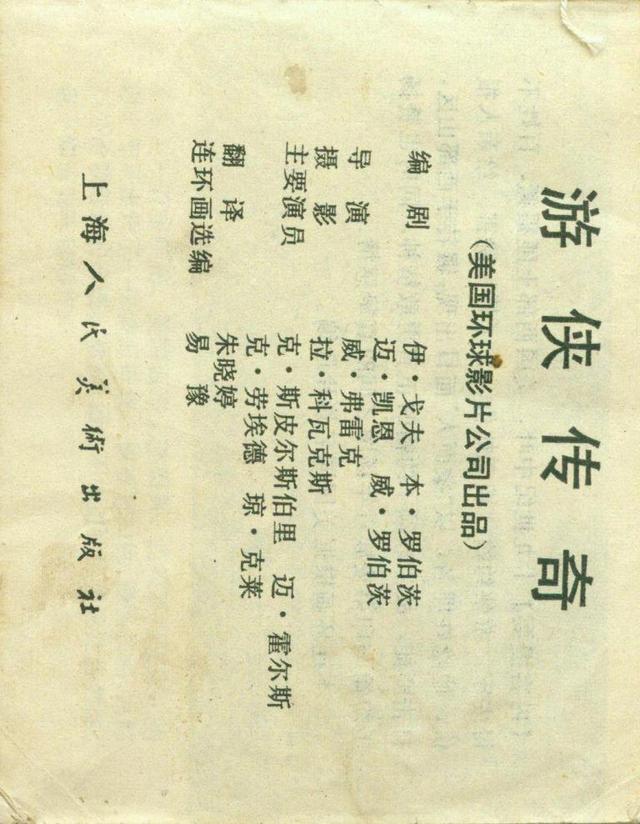 游侠传奇
(美国环球影片公司出品)
编剧 伊·戈夫 本·罗伯茨
迈·凯恩 威·罗伯茨
导演 威·弗雷克
摄影 拉·科瓦克斯
主要演员 克·斯皮尔斯伯里 迈·霍尔斯
克·劳埃德 琼·克莱
翻译 朱晓婷
连环画选编 易豫
上海人民美術出版社